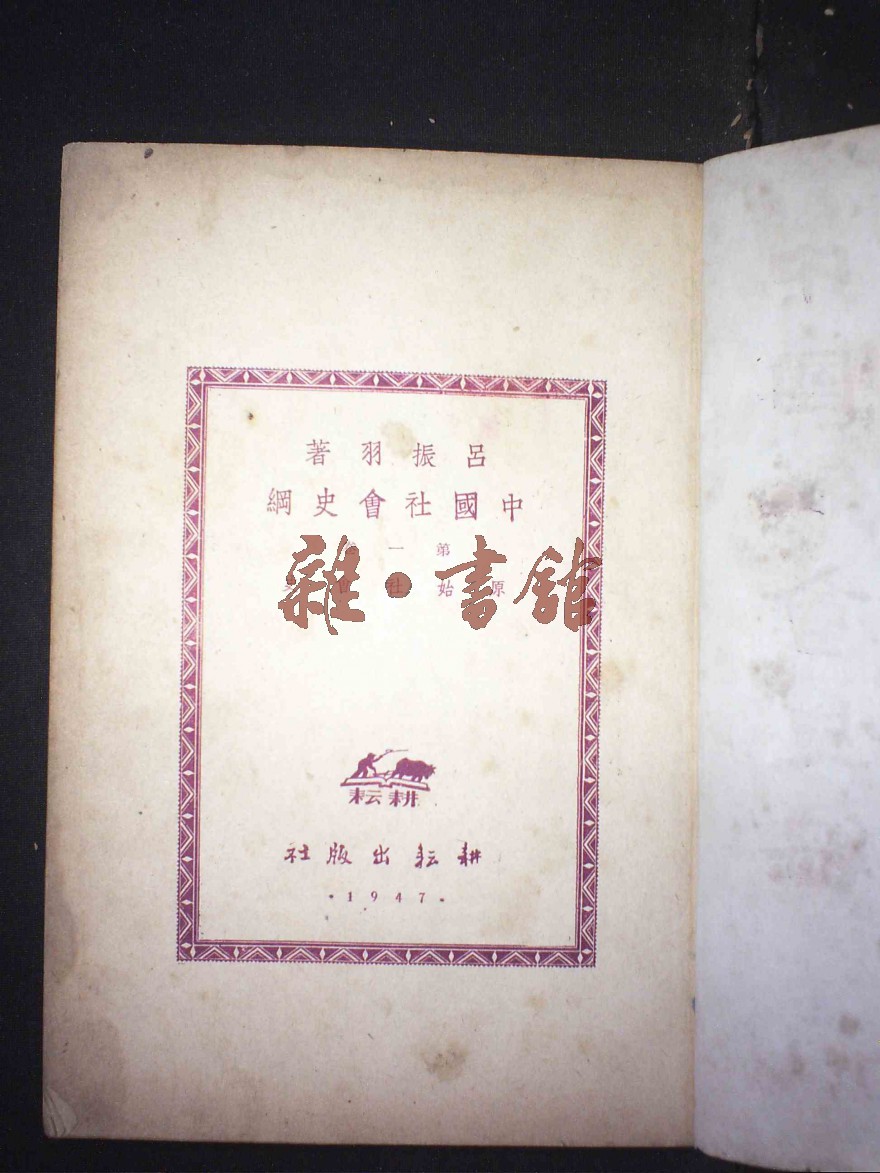 呂振羽著
中國社會史綱
第一
原始社會史
雜·書館
耕耘
耕耘出版社
·1947·